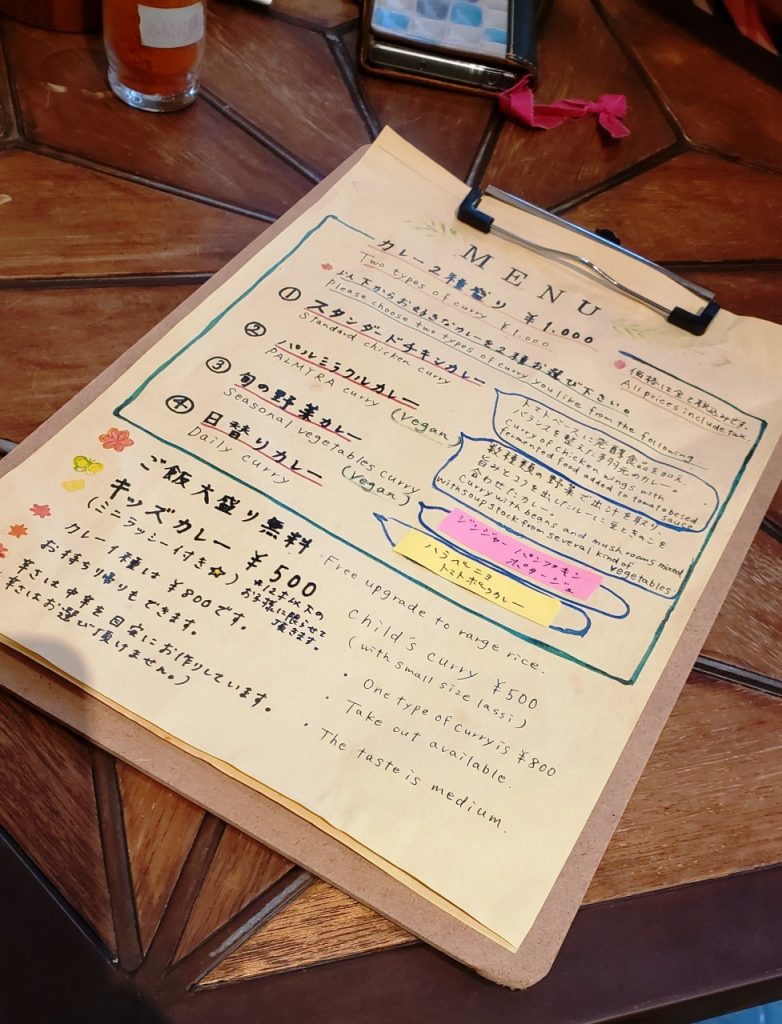 MENU
カレー2種盛り ¥1.000
Two types of curry ¥1.000
以下からお好きなカレーを2種お選び下さい。
Please choose two types of curry you like from the following
価格は全て税込みです。
All prices include tax.
① スタンダードチキンカレー
Standard chicken curry
トマトベースに発酵食品を加え、
バランスを整えた手羽元のカレー。
curry of chicken wings with
fermented food added to tomato besed
sauce
② パルミラクルカレー
PALMYRA curry (Vegan)
数種類の野菜で出汁を取り、
旨みとコクを出したルーに豆ときのこを
合わせたカレー。
curry with beans and mushrooms mixed
with soup stock from several kind of
vegetables.
③ 旬の野菜カレー
Seasonal vegetables curry
(Vegan)
ジンジャー パンプキン
ポタージュ
④ 日替りカレー
Daily curry
ハラペーニョ
トマトポークカレー
ご飯大盛り無料
キッズカレー ¥500
(ミニラッシー付き☆)
*12才以下の
お子様に限らせて
頂きます。
カレー1種は¥800です。
お持ち帰りもできます。
辛さは中辛を目安にお作りしています。
辛さはお選び頂けません。)
・Free upgrade to rarge rice.
child's curry ¥500
(with small size lassi)
・One type of curry is ¥800
・Take out available.
・The taste is medium.